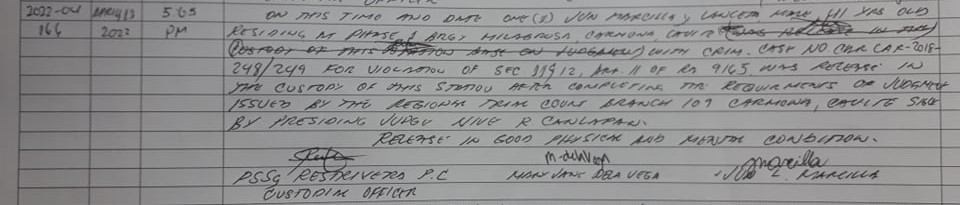 2022-04 APRIL 13 5:05 ON THIS TIME AND DATE ONE (1) JUN MARCILLA y LANCETA MALE, 41 YRS OLD
166 2022 PM RESIDING AT PHASE 1 ARGY MILAGROSA, CARMONA, CAVITE
CUSTODY OF THIS STATION BASE ON JUDGMENT) WITH CRIM. CASE NO CRR CAR-2018-
248/249 FOR VIOLATION OF SEC 11 & 12, Art. II OF RA 9165 WAS RELEASE IN
THE CUSTODY OF THIS STATION AFTER COMPLETING THE REQUIRMENTS OF JUDGMENT
ISSUED BY THE REGIONAL TRIAL COURT BRANCH 109 CARMONA, CAVITE SIGN
BY PRESIDING JUDGE R CANLAPAN.
RELEASE IN GOOD PHYSICAL AND MENTAL CONDITION.
PSSg RESTRIVERA P.C MARY JANE DELA VEGA JUN L. MARCILLA
CUSTODIAL OFFICER